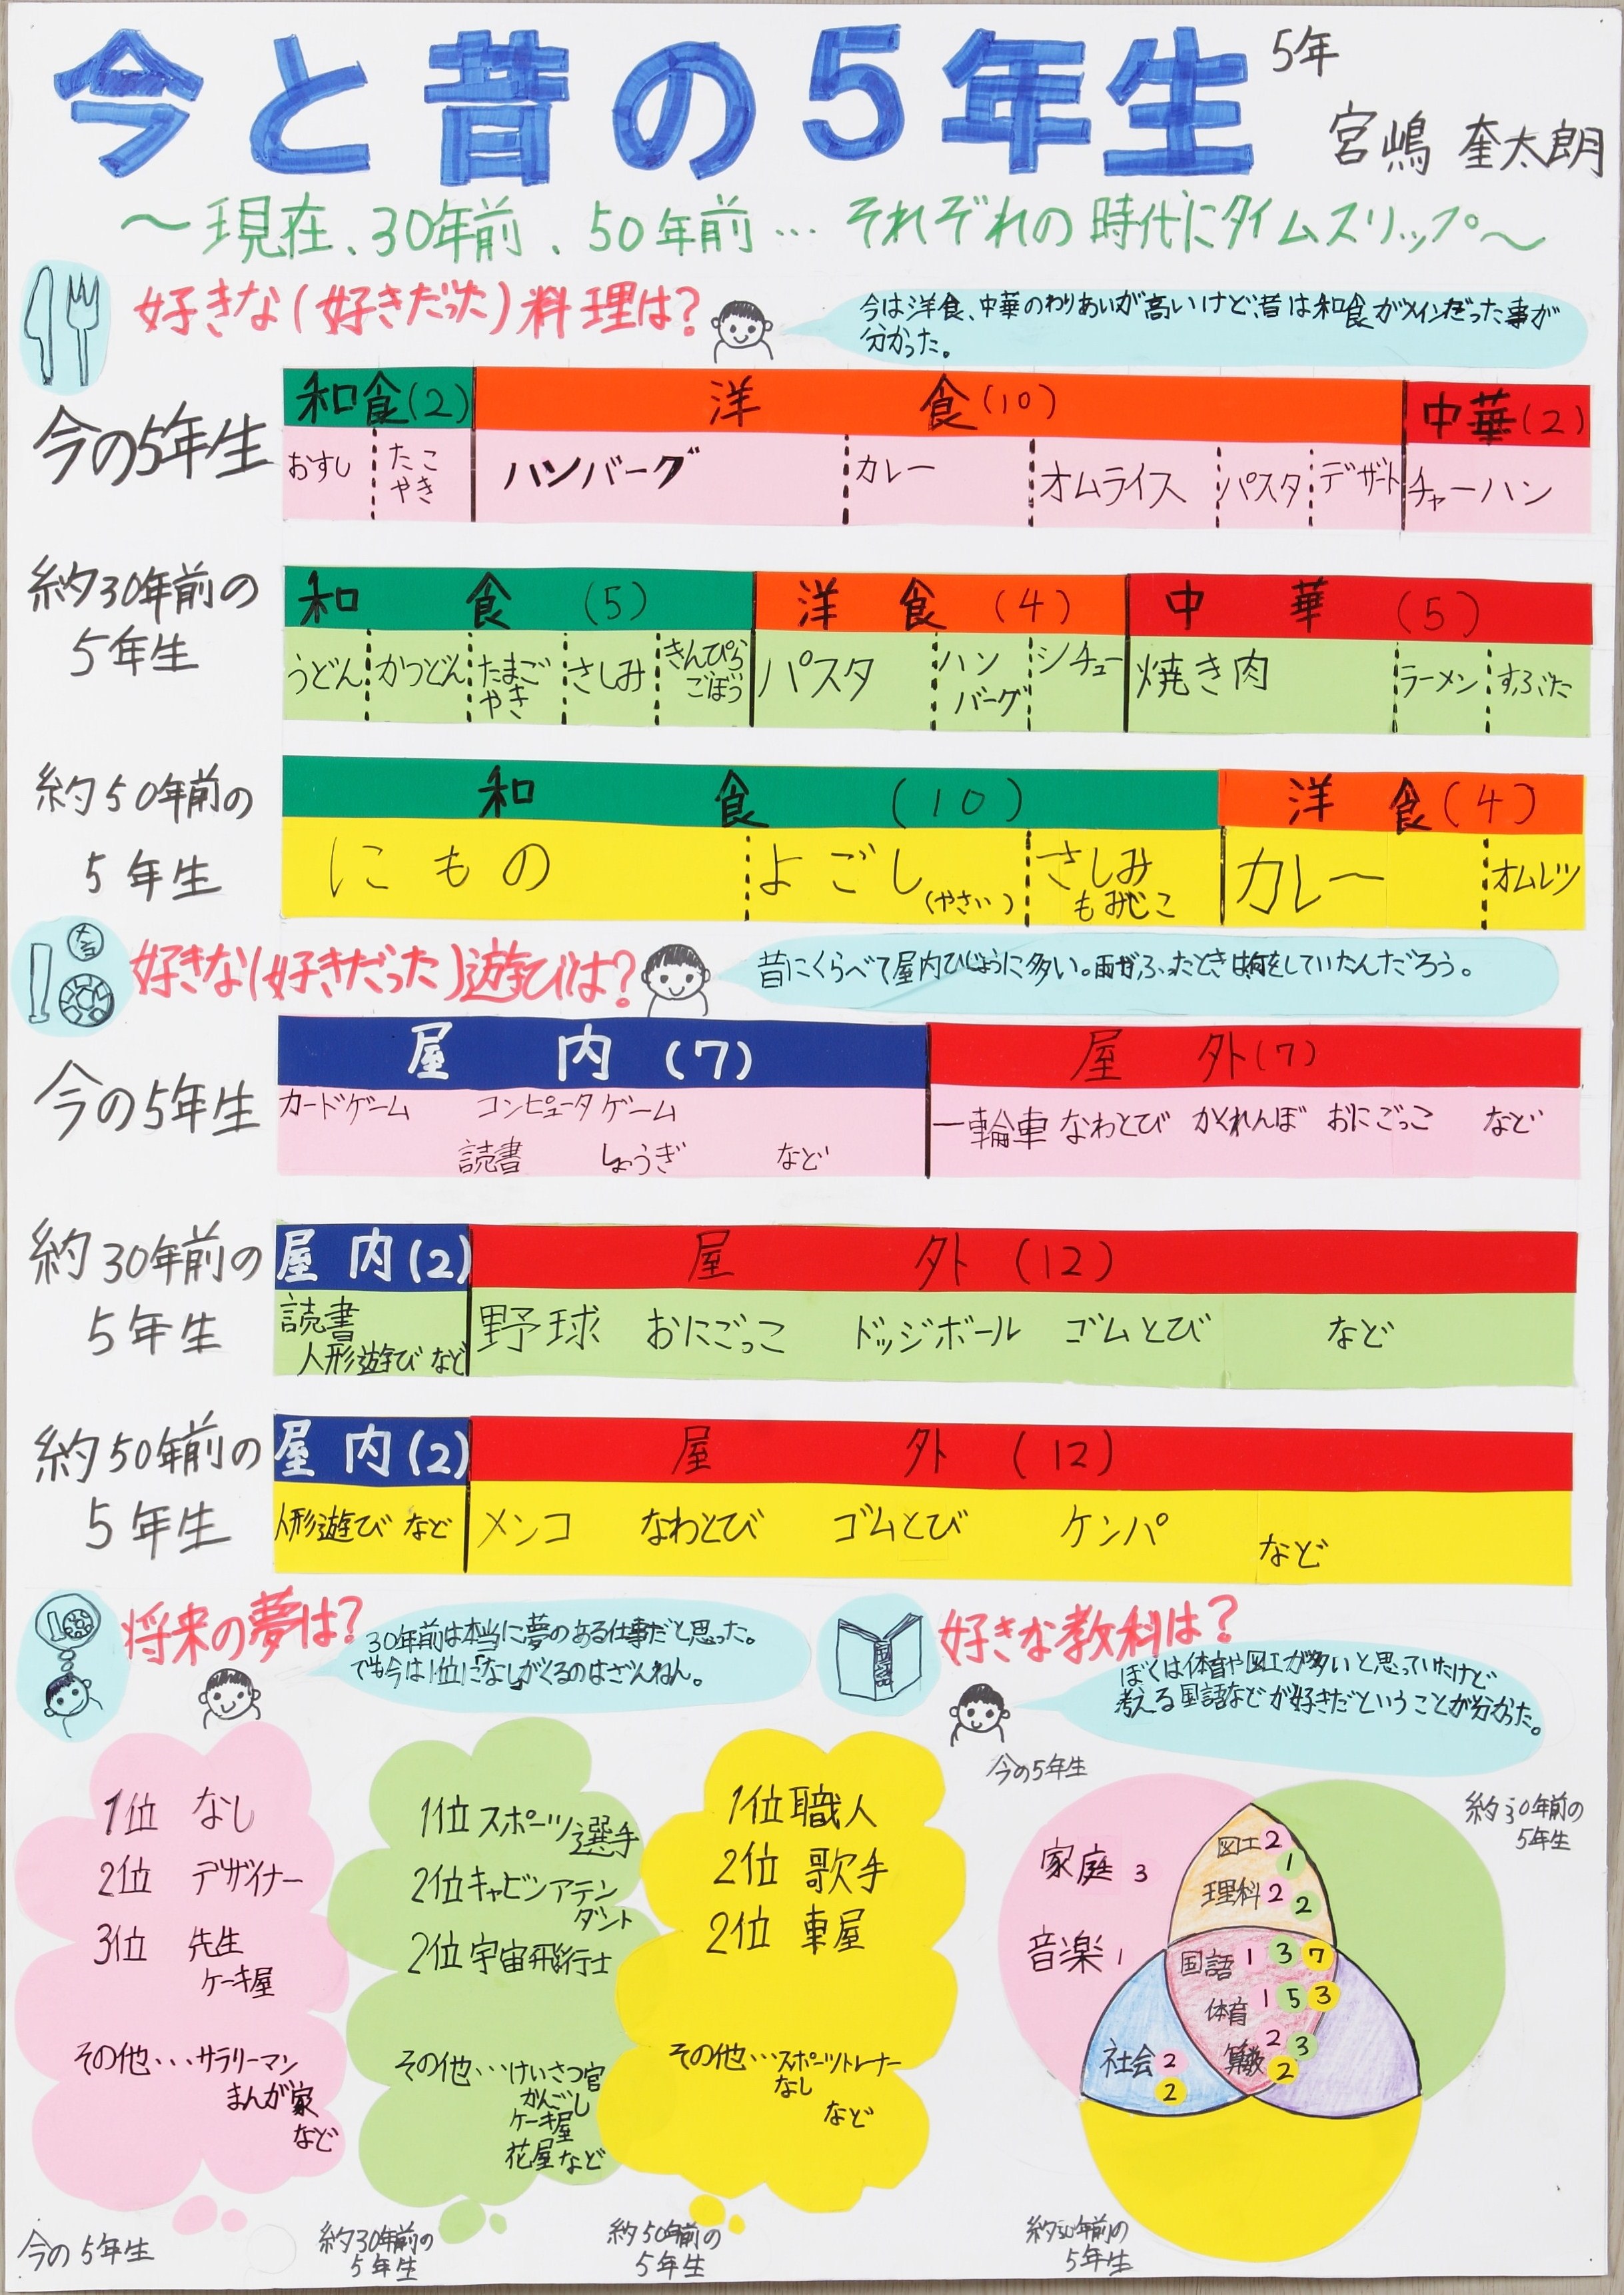 今と昔の5年生
5年
宮嶋 奎太朗
～現在、30年前、50年前…それぞれの時代にタイムスリップ～
好きな(好きだった)料理は?
今は洋食、中華のわりあいが高いけど、昔は和食がメインだった事が
分かった。
今の5年生
和食(2) 洋食(10) 中華(2)
おすし たこやき ハンバーグ カレー オムライス パスタ デザート チャーハン
約30年前の
5年生
和食(5) 洋食(4) 中華(5)
うどん かつどん たまごやき さしみ きんぴらごぼう パスタ ハンバーグ シチュー 焼き肉 ラーメン すぶた
約50年前の
5年生
和食(10) 洋食(4)
にもの よごし(やさい) さしみ もみじこ カレー オムレツ
好きな(好きだった)遊びは?
昔にくらべて屋内ひじょうに多い。雨がふったときは何をしていたんだろう。
今の5年生
屋内(7) 屋外(7)
カードゲーム コンピュータゲーム
読書 しょうぎ など
一輪車 なわとび かくれんぼ おにごっこ など
約30年前の
5年生
屋内(2) 屋外(12)
読書
人形遊び など
野球 おにごっこ ドッジボール ゴムとび など
約50年前の
5年生
屋内(2) 屋外(12)
人形遊び など メンコ なわとび ゴムとび ケンパ など
将来の夢は?
30年前は本当に夢のある仕事だと思った。
でも今は1位に「なし」がくるのはざんねん。
1位 なし
2位 デザイナー
3位 先生
ケーキ屋
その他…サラリーマン
まんが家
など
今の5年生
1位 スポーツ選手
2位 キャビンアテン
ダント
2位 宇宙飛行士
その他…けいさつ官
かんごし
ケーキ屋
花屋など
約30年前の
5年生
1位 職人
2位 歌手
2位 車屋
その他…スポーツトレーナー
なし
など
約50年前の
5年生
好きな教科は?
国語
ぼくは体育や図工が多いと思っていたけど
考える国語などが好きだということが分かった。
今の5年生
約30年前の
5年生
家庭 3
音楽 1
図工 2 1
理科 2 2
国語 1 3 7
体育 1 5 3
算数 2 3 2
社会 2 2
約50年前の
5年生